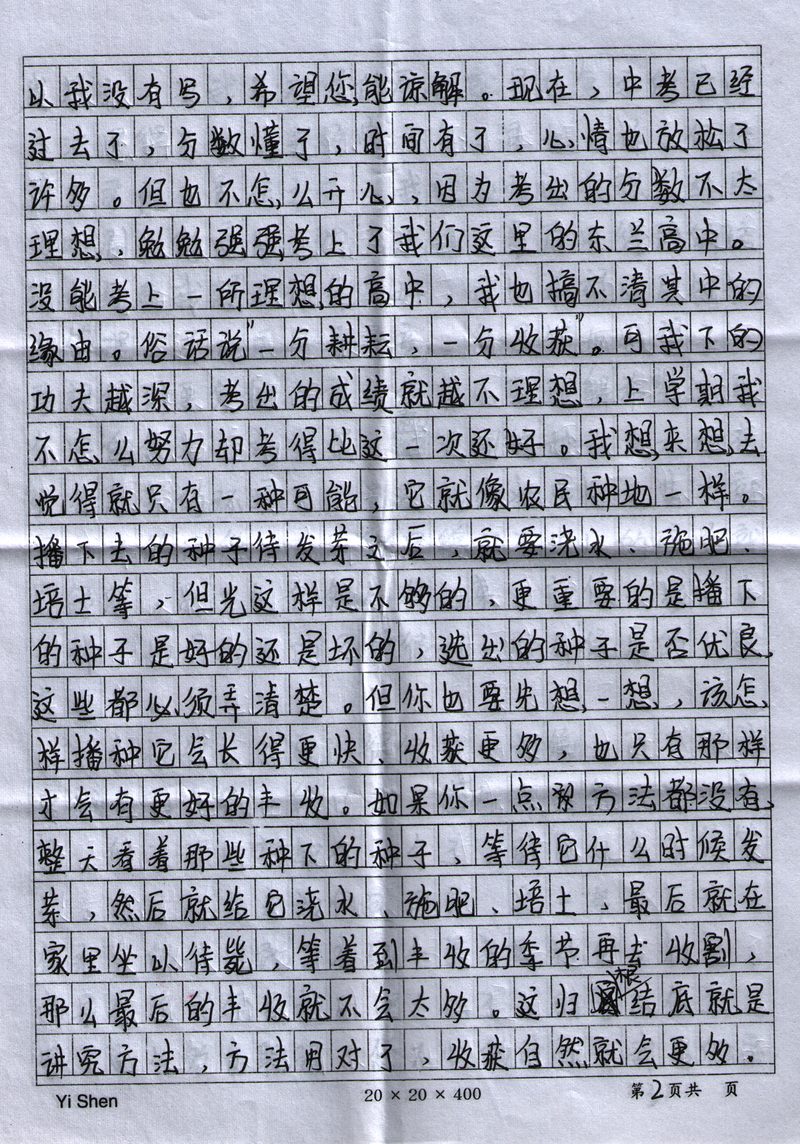 以我没有写，希望您能谅解。现在，中考已经
过去了，分数懂了，时间有了，心情也放松了
许多。但也不怎么开心，因为考出的分数不太
理想，勉勉强强考上了我们这里的东兰高中。
没能考上一所理想的高中，我也搞不清其中的
缘由。俗话说“一分耕耘，一分收获”。可我下的
功夫越深，考出的成绩就越不理想，上学期我
不怎么努力却考得比这一次还好。我想来想去
觉得就只有一种可能，它就像农民种地一样。
播下去的种子待发芽之后，就要浇水、施肥、
培土等，但光这样是不够的，更重要的是播下
的种子是好的还是坏的，选出的种子是否优良，
这些都必须弄清楚。但你也要先想一想，该怎
样播种它会长得更快、收获更多，也只有那样
才会有更好的丰收。如果你一点方法都没有，
整天看着那些种下的种子，等待它什么时候发
芽，然后就给它浇水、施肥、培土，最后就在
家里坐以待毙，等着到丰收的季节再去收割，
那么最后的丰收就不会太多。这归根结底就是
讲究方法，方法用对了，收获自然就会更多。
Yi Shen
20 × 20 × 400
第2页共 页